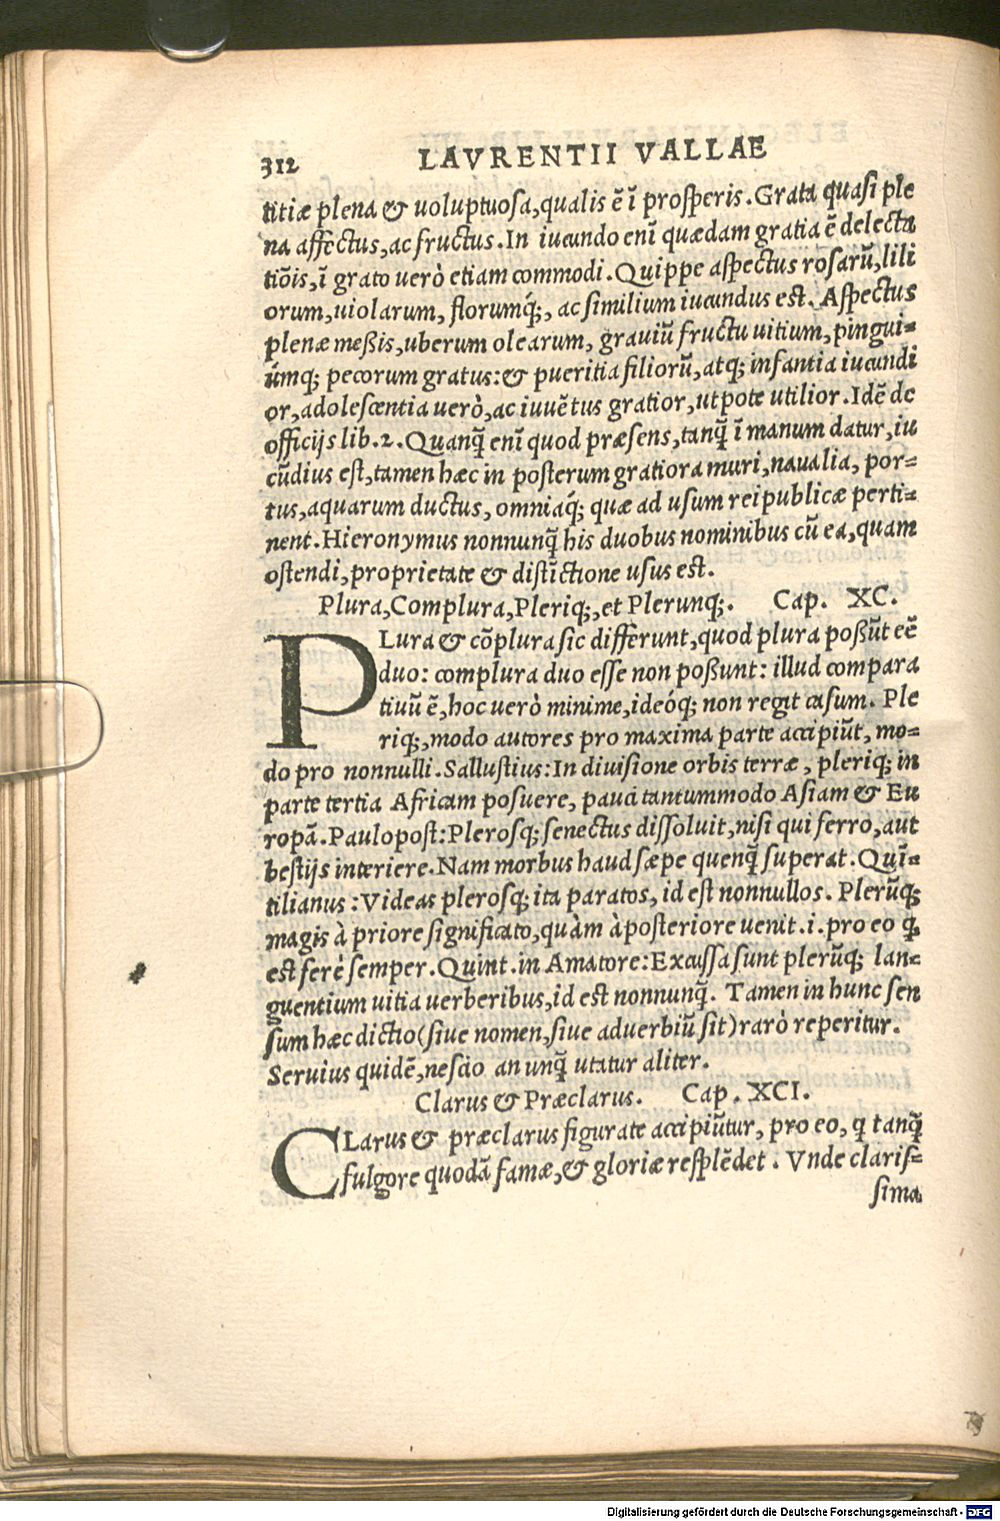 312 LAVRENTII VALLAE
titiæ plena & uoluptuosa, qualis ē ī prosperis. Grata quasi ple
na affectus, ac fructus. In iucundo enī quædam gratia ē delecta
tiōis, ī grato uerò etiam commodi. Quippe aspectus rosarū, lili
orum, uiolarum, florumq́;, ac similium iucundus est. Aspectus
plenæ meßis, uberum olearum, grauiū fructu uitium, pingui-
úmq; pecorum gratus: & pueritia filiorū, atq; infantia iucundi
or, adolescentia uerò, ac iuuētus gratior, utpote utilior. Idē de
officijs lib. 2. Quanq̄ enī quod præsens, tanq̄ ī manum datur, iu
cūdius est, tamen hæc in posterum gratiora muri, naualia, por-
tus, aquarum ductus, omniaq́; quæ ad usum reipublicæ perti-
nent. Hieronymus nonnunq̄ his duobus nominibus cū ea, quam
ostendi, proprietate & distīctione usus est.
Plura, Complura, Pleriq;, et Plerunq;. Cap. XC.
PLura & cōplura sic differunt, quod plura poßūt eē
duo: complura duo esse non poßunt: illud compara
tiuū ē, hoc uerò minime, ideóq; non regit casum. Ple
riq;, modo autores pro maxima parte accipiūt, mo-
do pro nonnulli. Sallustius: In diuisione orbis terræ, pleriq; in
parte tertia Africam posuere, pauci tantummodo Asiam & Eu
ropā. Paulo post: Plerosq; senectus dissoluit, nisi qui ferro, aut
bestijs interiere. Nam morbus haud sæpe quenq̄ superat. Quī-
tilianus: Videas plerosq; ita paratos, id est nonnullos. Plerūq;
magis à priore significato, quàm à posteriore uenit. i. pro eo q̨
est ferè semper. Quint. in Amatore: Excussa sunt plerūq; lan-
guentium uitia uerberibus, id est nonnunq̄. Tamen in hunc sen
sum hæc dictio (siue nomen, siue aduerbiū sit) rarò reperitur.
Seruius quidē, nescio an unq̄ utatur aliter.
Clarus & Præclarus. Cap. XCI.
CLarus & præclarus figurate accipiūtur, pro eo, q tanq̄
fulgore quodā famæ, & gloriæ resplēdet. Vnde claris-
sima
Digitalisierung gefördert durch die Deutsche Forschungsgemeinschaft - DFG